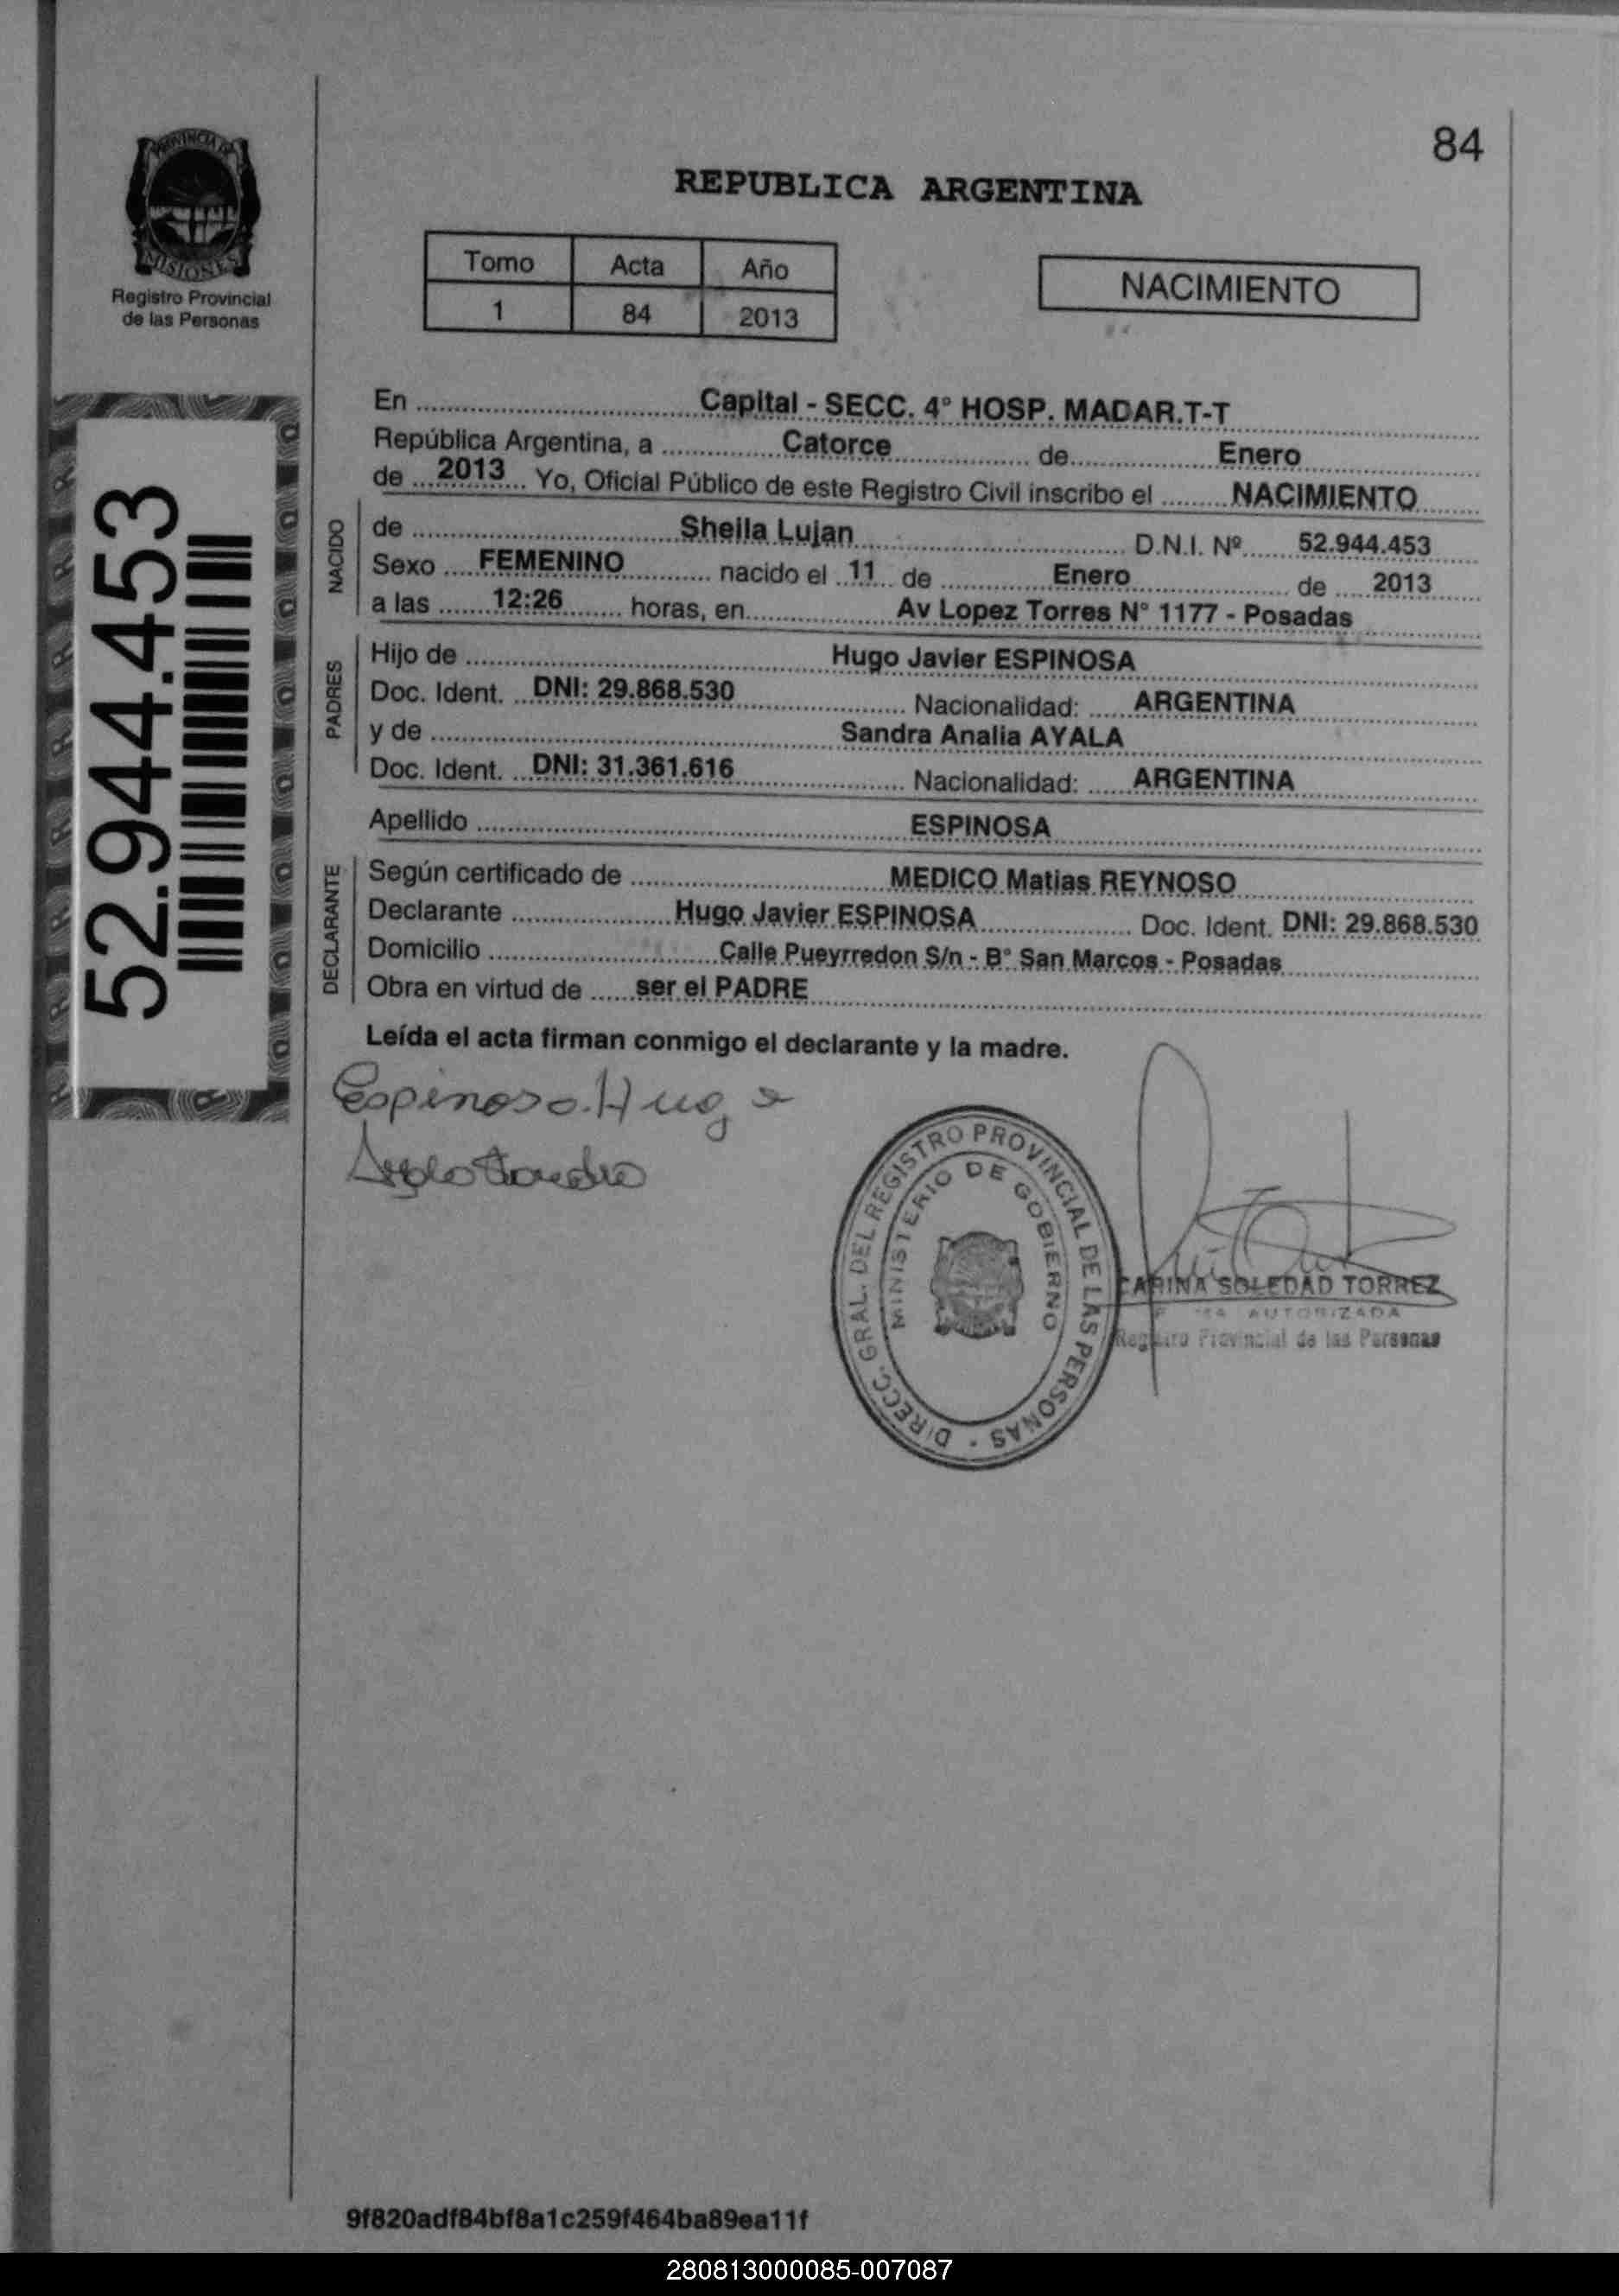 84
PROVINCIA DE
MISIONES
Registro Provincial
de las Personas
REPUBLICA ARGENTINA
Tomo Acta Año
1 84 2013
NACIMIENTO
52.944.453
En Capital - SECC. 4° HOSP. MADAR.T-T
República Argentina, a Catorce de Enero
de 2013 Yo, Oficial Público de este Registro Civil inscribo el NACIMIENTO
NACIDO
de Sheila Lujan D.N.I. Nº 52.944.453
Sexo FEMENINO nacido el 11 de Enero de 2013
a las 12:26 horas, en Av Lopez Torres N° 1177 - Posadas
PADRES
Hijo de Hugo Javier ESPINOSA
Doc. Ident. DNI: 29.868.530 Nacionalidad: ARGENTINA
y de Sandra Analia AYALA
Doc. Ident. DNI: 31.361.616 Nacionalidad: ARGENTINA
Apellido ESPINOSA
DECLARANTE
Según certificado de MEDICO Matias REYNOSO
Declarante Hugo Javier ESPINOSA Doc. Ident. DNI: 29.868.530
Domicilio Calle Pueyrredon S/n - B° San Marcos - Posadas
Obra en virtud de ser el PADRE
Leída el acta firman conmigo el declarante y la madre.
Espinosa Hugo
DIRECC. GRAL. DEL REGISTRO PROVINCIAL DE LAS PERSONAS
MINISTERIO DE GOBIERNO
CARINA SOLEDAD TORREZ
AUTORIZADA
Registro Provincial de las Personas
9f820adf84bf8a1c259f464ba89ea11f
280813000085-007087